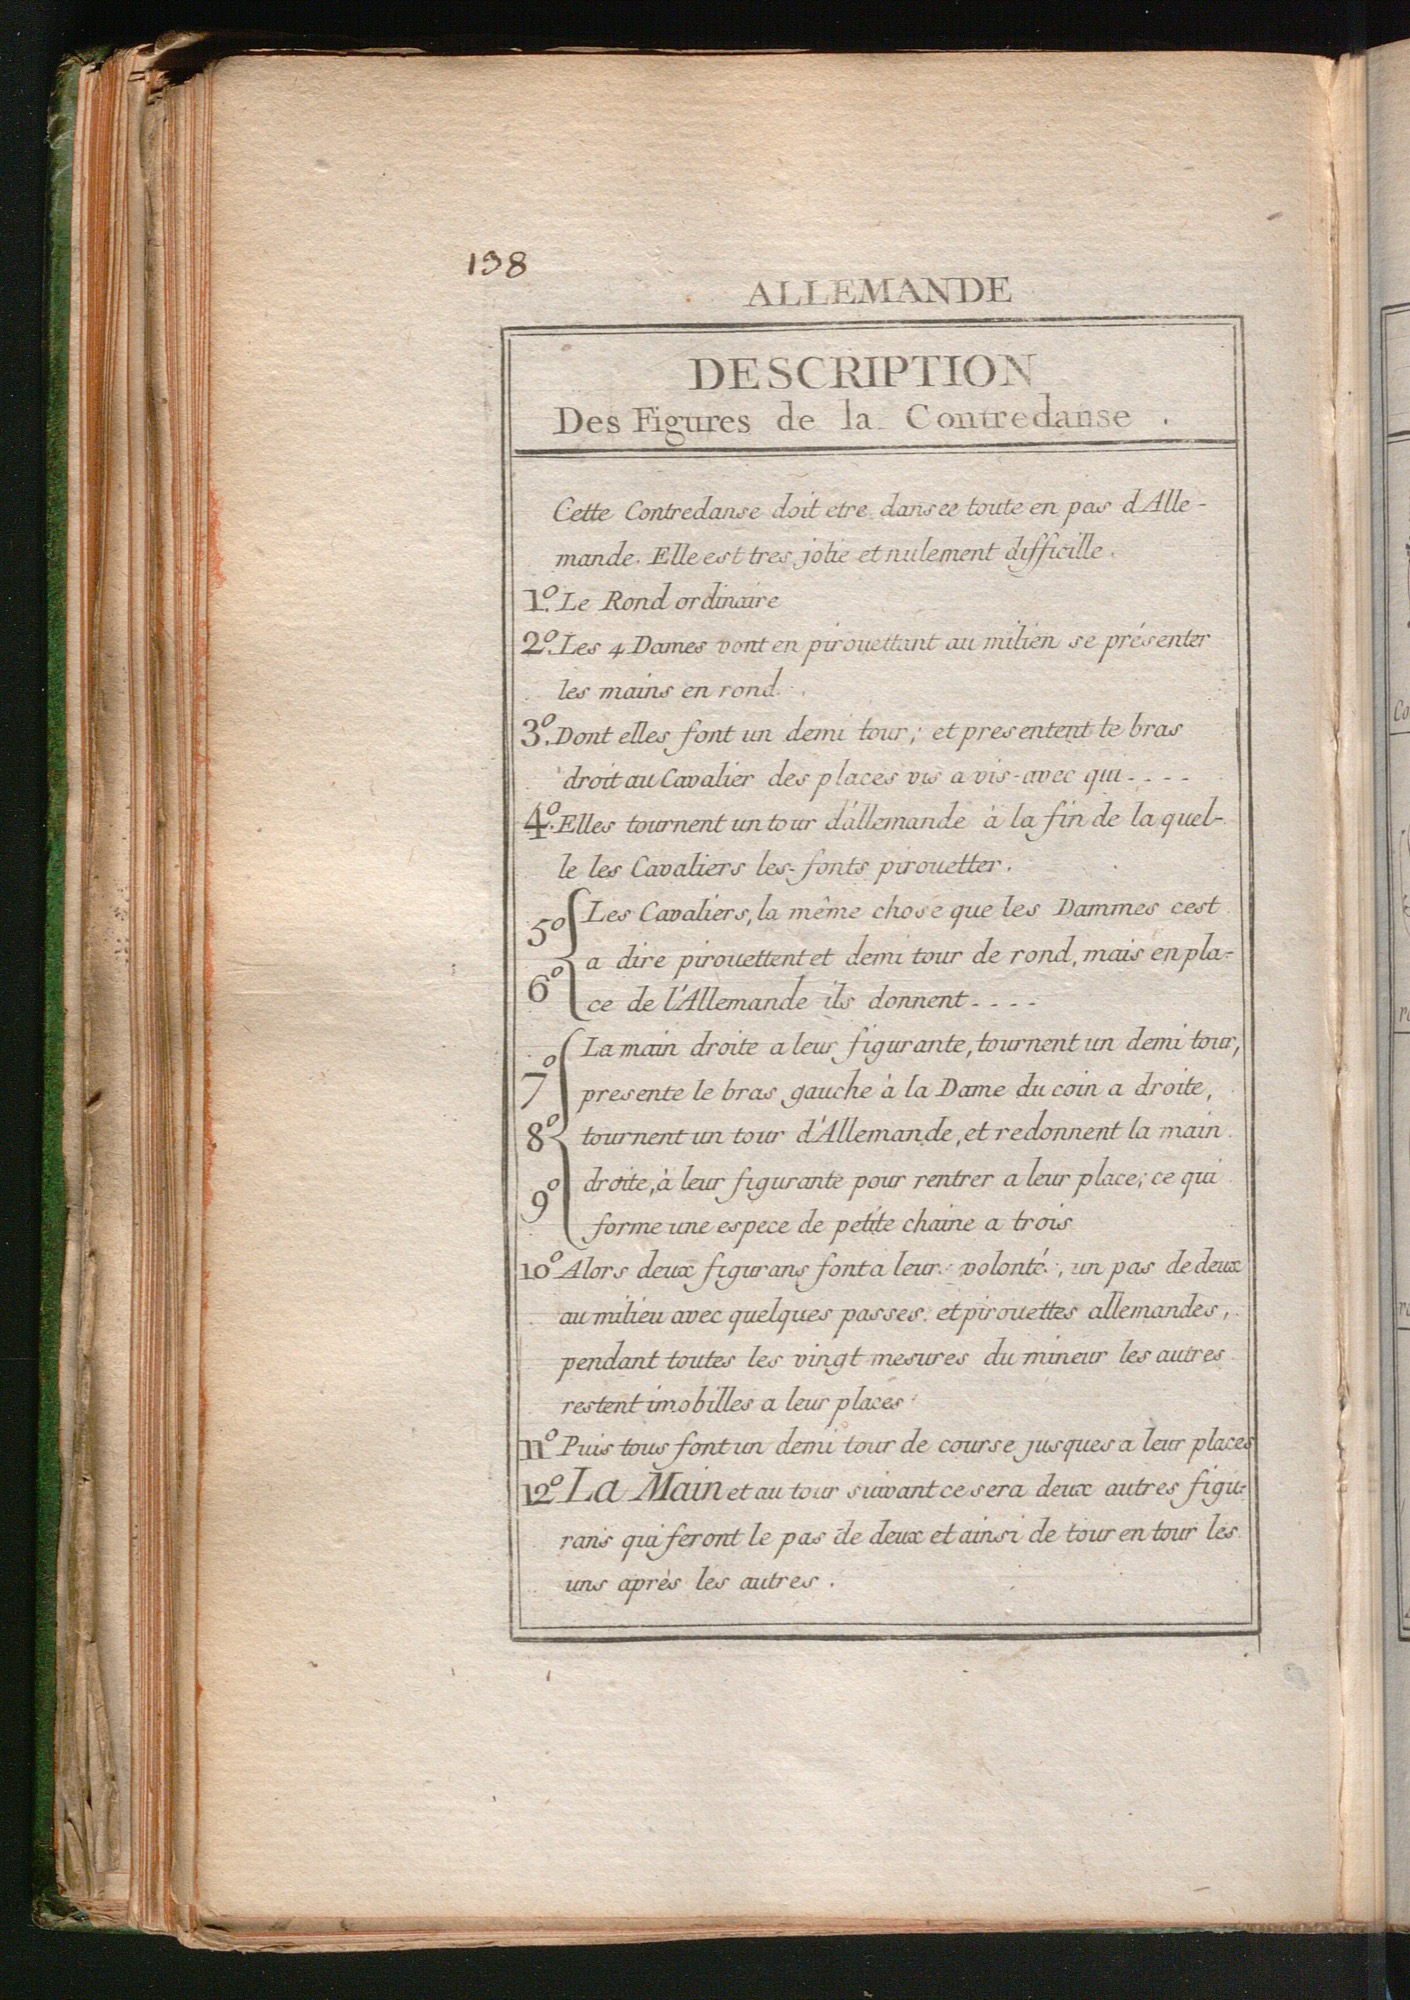 198
ALLEMANDE
DESCRIPTION
Des Figures de la Contredanse.
Cette Contredanse doit etre dansee toute en pas dAlle-
mande. Elle est tres jolie et nulement difficille.
1º. Le Rond ordinaire
2º. Les 4 Dames vont en pirouettant au milien se présenter
les mains en rond.
3º. Dont elles font un demi tour; et presentent le bras
droit au Cavalier des places vis a vis-avec qui - - - -
4º. Elles tournent un tour d'allemande à la fin de la quel-
le les Cavaliers les fonts pirouetter.
5º Les Cavaliers, la même chose que les Dammes cest
a dire pirouettent et demi tour de rond, mais en pla-
6º ce de l'Allemande ils donnent - - - -
La main droite a leur figurante, tournent un demi tour,
7º presente le bras gauche à la Dame du coin a droite,
8º tournent un tour d'Allemande, et redonnent la main
9º droite, à leur figurante pour rentrer a leur place; ce qui
forme une espece de petite chaine a trois
10º Alors deux figurans font a leur volonté, un pas de deux
au milieu avec quelques passes. et pirouettes allemandes,
pendant toutes les vingt mesures du mineur les autres
restent imobilles a leur places
11º Puis tous font un demi tour de course jusques a leur places
12º La Main et au tour suivant ce sera deux autres figu-
rans qui feront le pas de deux et ainsi de tour en tour les
uns aprés les autres.